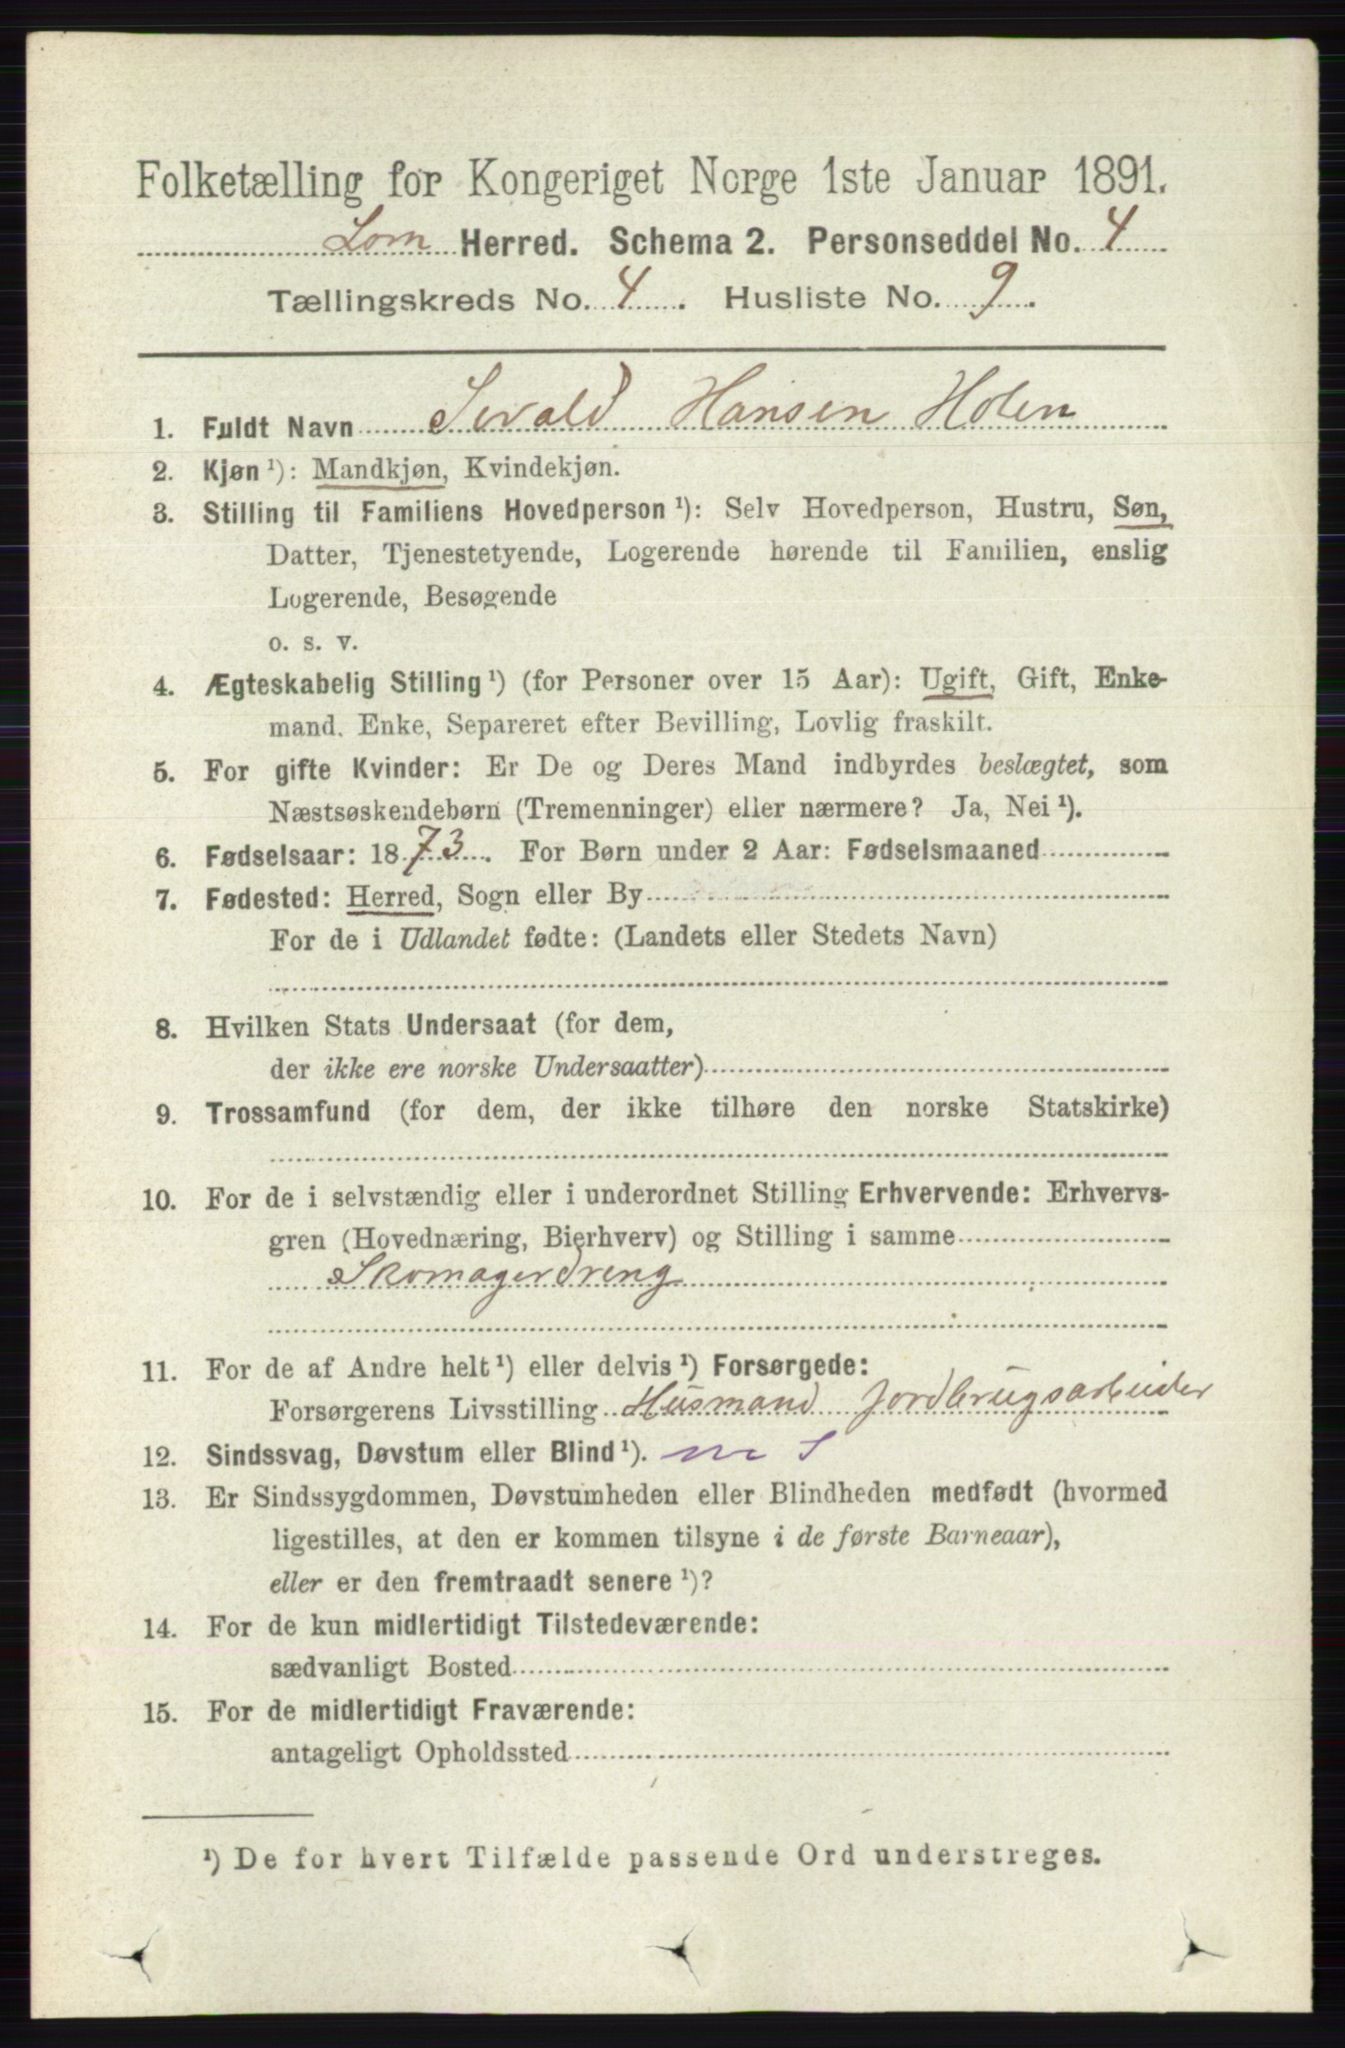 Folketælling for Kongeriget Norge 1ste Januar 1891.
Lom Herred. Schema 2. Personseddel No. 4
Tællingskreds No. 4. Husliste No. 9.
1. Fuldt Navn Sevald Hansen Holen
2. Kjøn¹): Mandkjøn, Kvindekjøn.
3. Stilling til Familiens Hovedperson¹): Selv Hovedperson, Hustru, Søn,
Datter, Tjenestetyende, Logerende hørende til Familien, enslig
Logerende, Besøgende
o. s. v.
4. Ægteskabelig Stilling¹) (for Personer over 15 Aar): Ugift, Gift, Enke-
mand. Enke, Separeret efter Bevilling, Lovlig fraskilt.
5. For gifte Kvinder: Er De og Deres Mand indbyrdes beslægtet, som
Næstsøskendebørn (Tremenninger) eller nærmere? Ja, Nei¹).
6. Fødselsaar: 1873. For Børn under 2 Aar: Fødselsmaaned
7. Fødested: Herred, Sogn eller By
For de i Udlandet fødte: (Landets eller Stedets Navn)
8. Hvilken Stats Undersaat (for dem,
der ikke ere norske Undersaatter)
9. Trossamfund (for dem, der ikke tilhøre den norske Statskirke)
10. For de i selvstændig eller i underordnet Stilling Erhvervende: Erhvervs-
gren (Hovednæring, Bierhverv) og Stilling i samme
Skomagerdreng
11. For de af Andre helt¹) eller delvis¹) Forsørgede:
Forsørgerens Livsstilling Husmand Jordbrugsarbeider
12. Sindssvag, Døvstum eller Blind¹).
13. Er Sindssygdommen, Døvstumheden eller Blindheden medfødt (hvormed
ligestilles, at den er kommen tilsyne i de første Barneaar),
eller er den fremtraadt senere¹)?
14. For de kun midlertidigt Tilstedeværende:
sædvanligt Bosted
15. For de midlertidigt Fraværende:
antageligt Opholdssted
¹) De for hvert Tilfælde passende Ord understreges.